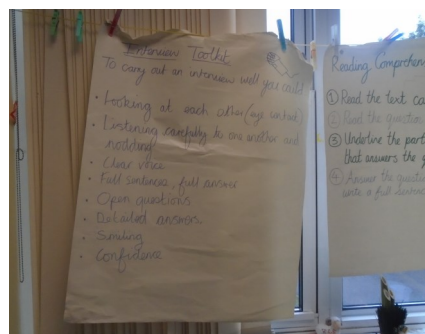 Interview Toolkit
To carry out an interview well you could
• Looking at each other (eye contact)
• Listening carefully to one another and
nodding
• Clear voice
• Full sentences, full answer
• Open questions
• Detailed answers
• Smiling
• Confidence
Reading Comprehen
① Read the text ca
② Read the question
③ Underline the part
that answers the q
④ Answer the questio
write a full sentenc